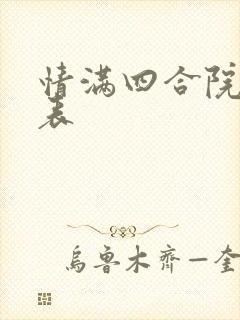 情满四合院
表
乌鲁木齐—奎